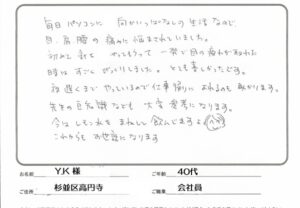 毎日パソコンに向かいっぱなしの生活なので、
目、肩、腰の痛みに悩まされていました。
初めて鍼をやってもらって一発で目の疲れが取れた
時はすごくびっくりしました。とても楽しかったです。
夜遅くまでやっているので仕事帰りによれるのも助かります。
先生の豆知識なども大変参考になります。
今はしょうが湯をまねして飲んでますよ
これからもお世話になります
お名前 Y.K 様 ご年齢 40代
ご住所 杉並区高円寺 ご職業 会社員